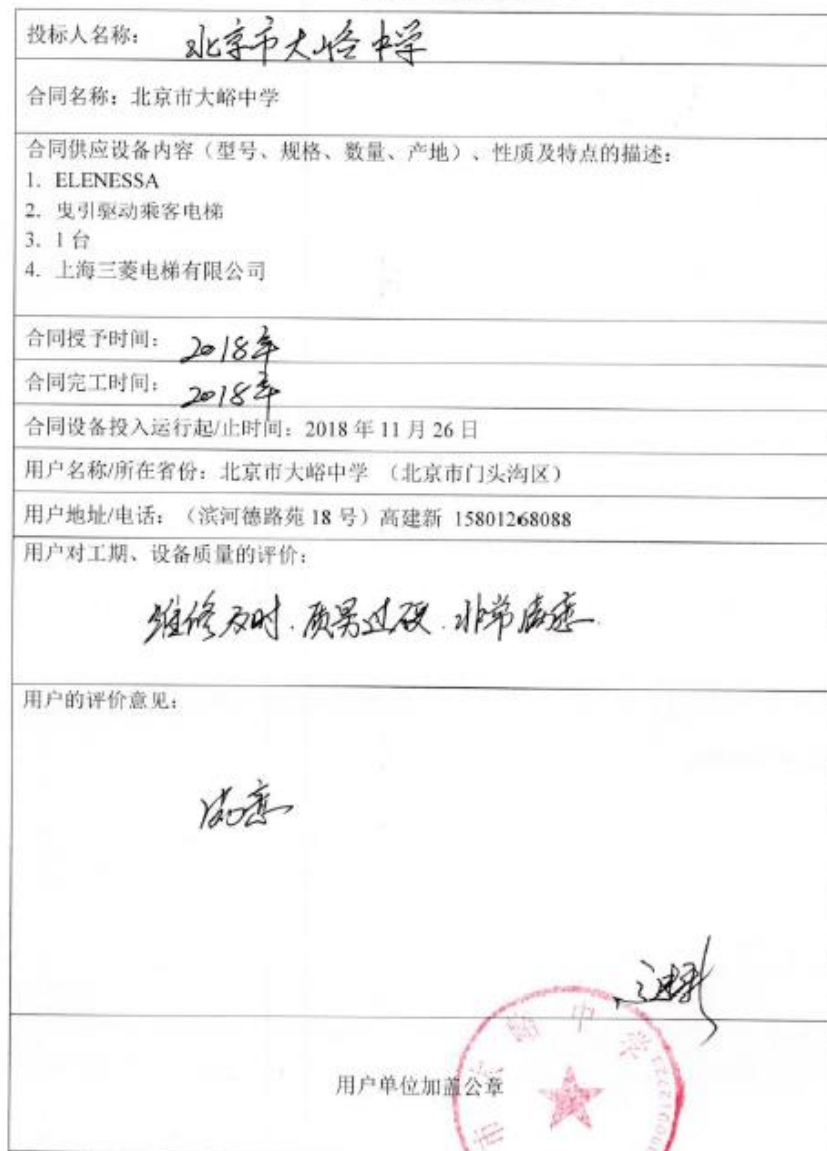 投标人名称： 北京市大峪中学
合同名称：北京市大峪中学
合同供应设备内容（型号、规格、数量、产地）、性质及特点的描述：
1. ELENESSA
2. 曳引驱动乘客电梯
3. 1 台
4. 上海三菱电梯有限公司
合同授予时间： 2018年
合同完工时间： 2018年
合同设备投入运行起/止时间：2018 年 11 月 26 日
用户名称/所在省份：北京市大峪中学 （北京市门头沟区）
用户地址/电话：（滨河德路苑 18 号）高建新 15801268088
用户对工期、设备质量的评价：
维修及时.质量过硬.非常满意.
用户的评价意见：
满意
用户单位加盖公章
市大峪中学